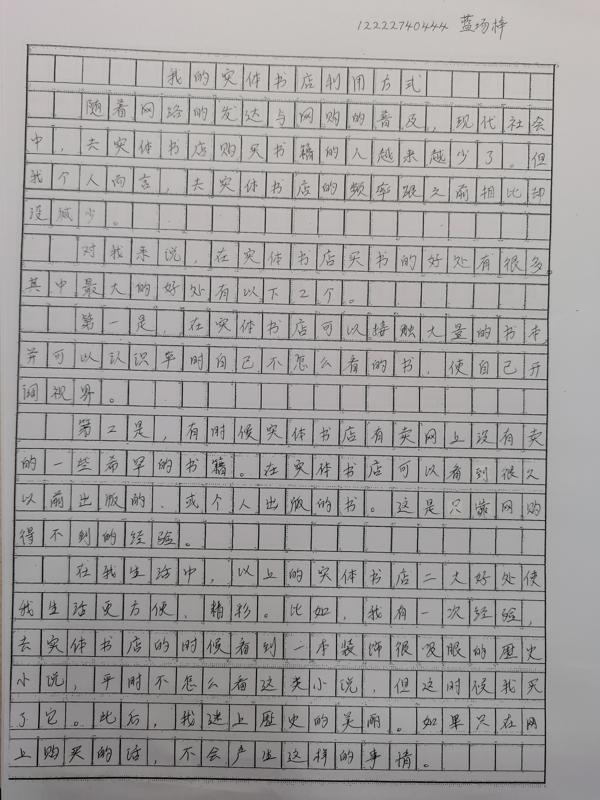 12222740444 蓝场梓
我的实体书店利用方式
随着网络的发达与网购的普及，现代社会
中，去实体书店购买书籍的人越来越少了。但
我个人而言，去实体书店的频率跟之前相比却
没减少。
对我来说，在实体书店买书的好处有很多
其中最大的好处有以下2个。
第一是，在实体书店可以接触大量的书本
并可以认识平时自己不怎么看的书，使自己开
阔视界。
第2是，有时候实体书店有卖网上没有卖
的一些希罕的书籍。在实体书店可以看到很久
以前出版的、或个人出版的书。这是只靠网购
得不到的经验。
在我生活中，以上的实体书店二大好处使
我生活更方便、精彩。比如，我有一次经验，
去实体书店的时候看到一本装饰很吸眼的歴史
小说，平时不怎么看这类小说，但这时候我买
了它。此后，我迷上歴史的美丽。如果只在网
上购买的话，不会产生这样的事情。